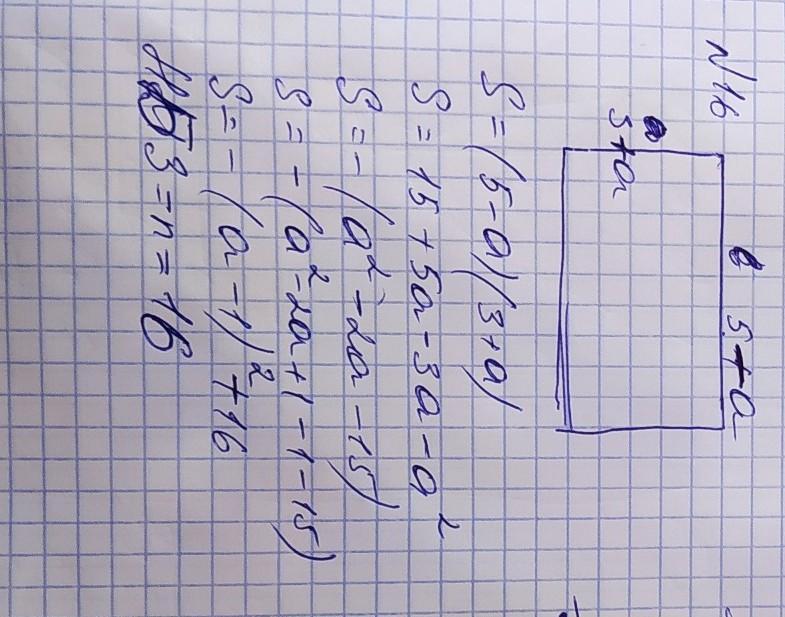 N16
в 5+a
3+a
S = (5-a)(3+a)
S = 15+5a-3a-a²
S = -(a²-2a-15)
S = -(a²-2a+1-1-15)
S = -(a-1)²+16
НБЗ = n = 16